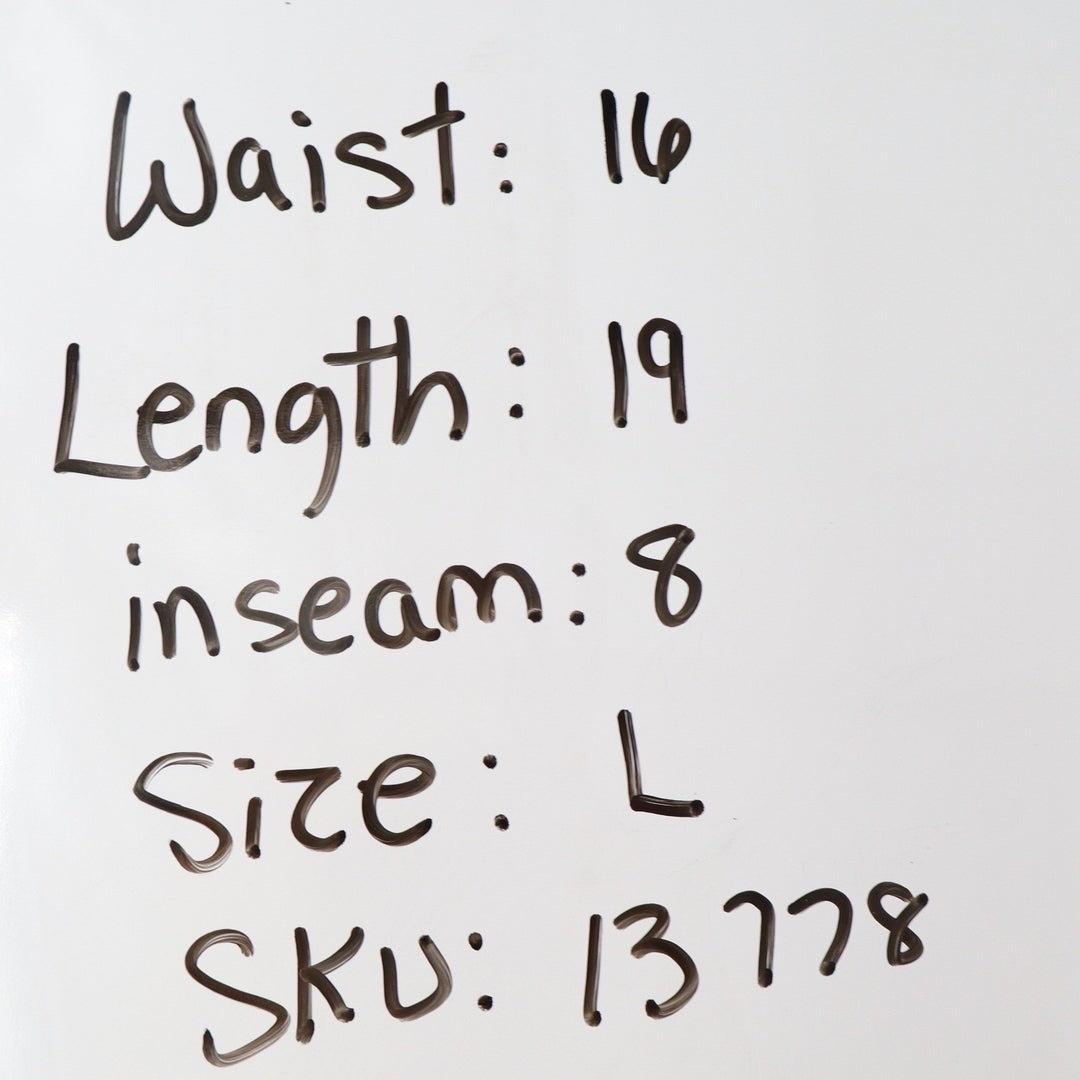 Waist: 16
Length: 19
inseam: 8
Size: L
SKU: 13778